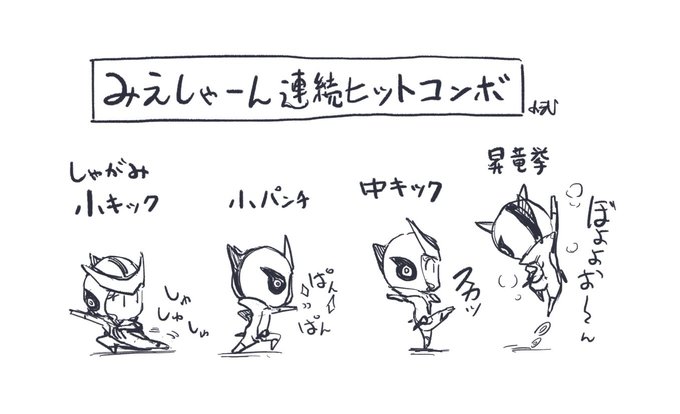 みえしゃーん連続ヒットコンボ
しゃがみ
小キック
しゃ
しゃ
しゅ
小パンチ
ぱん
ぱん
中キック
スカッ
昇竜拳
ぼよよお〜ん